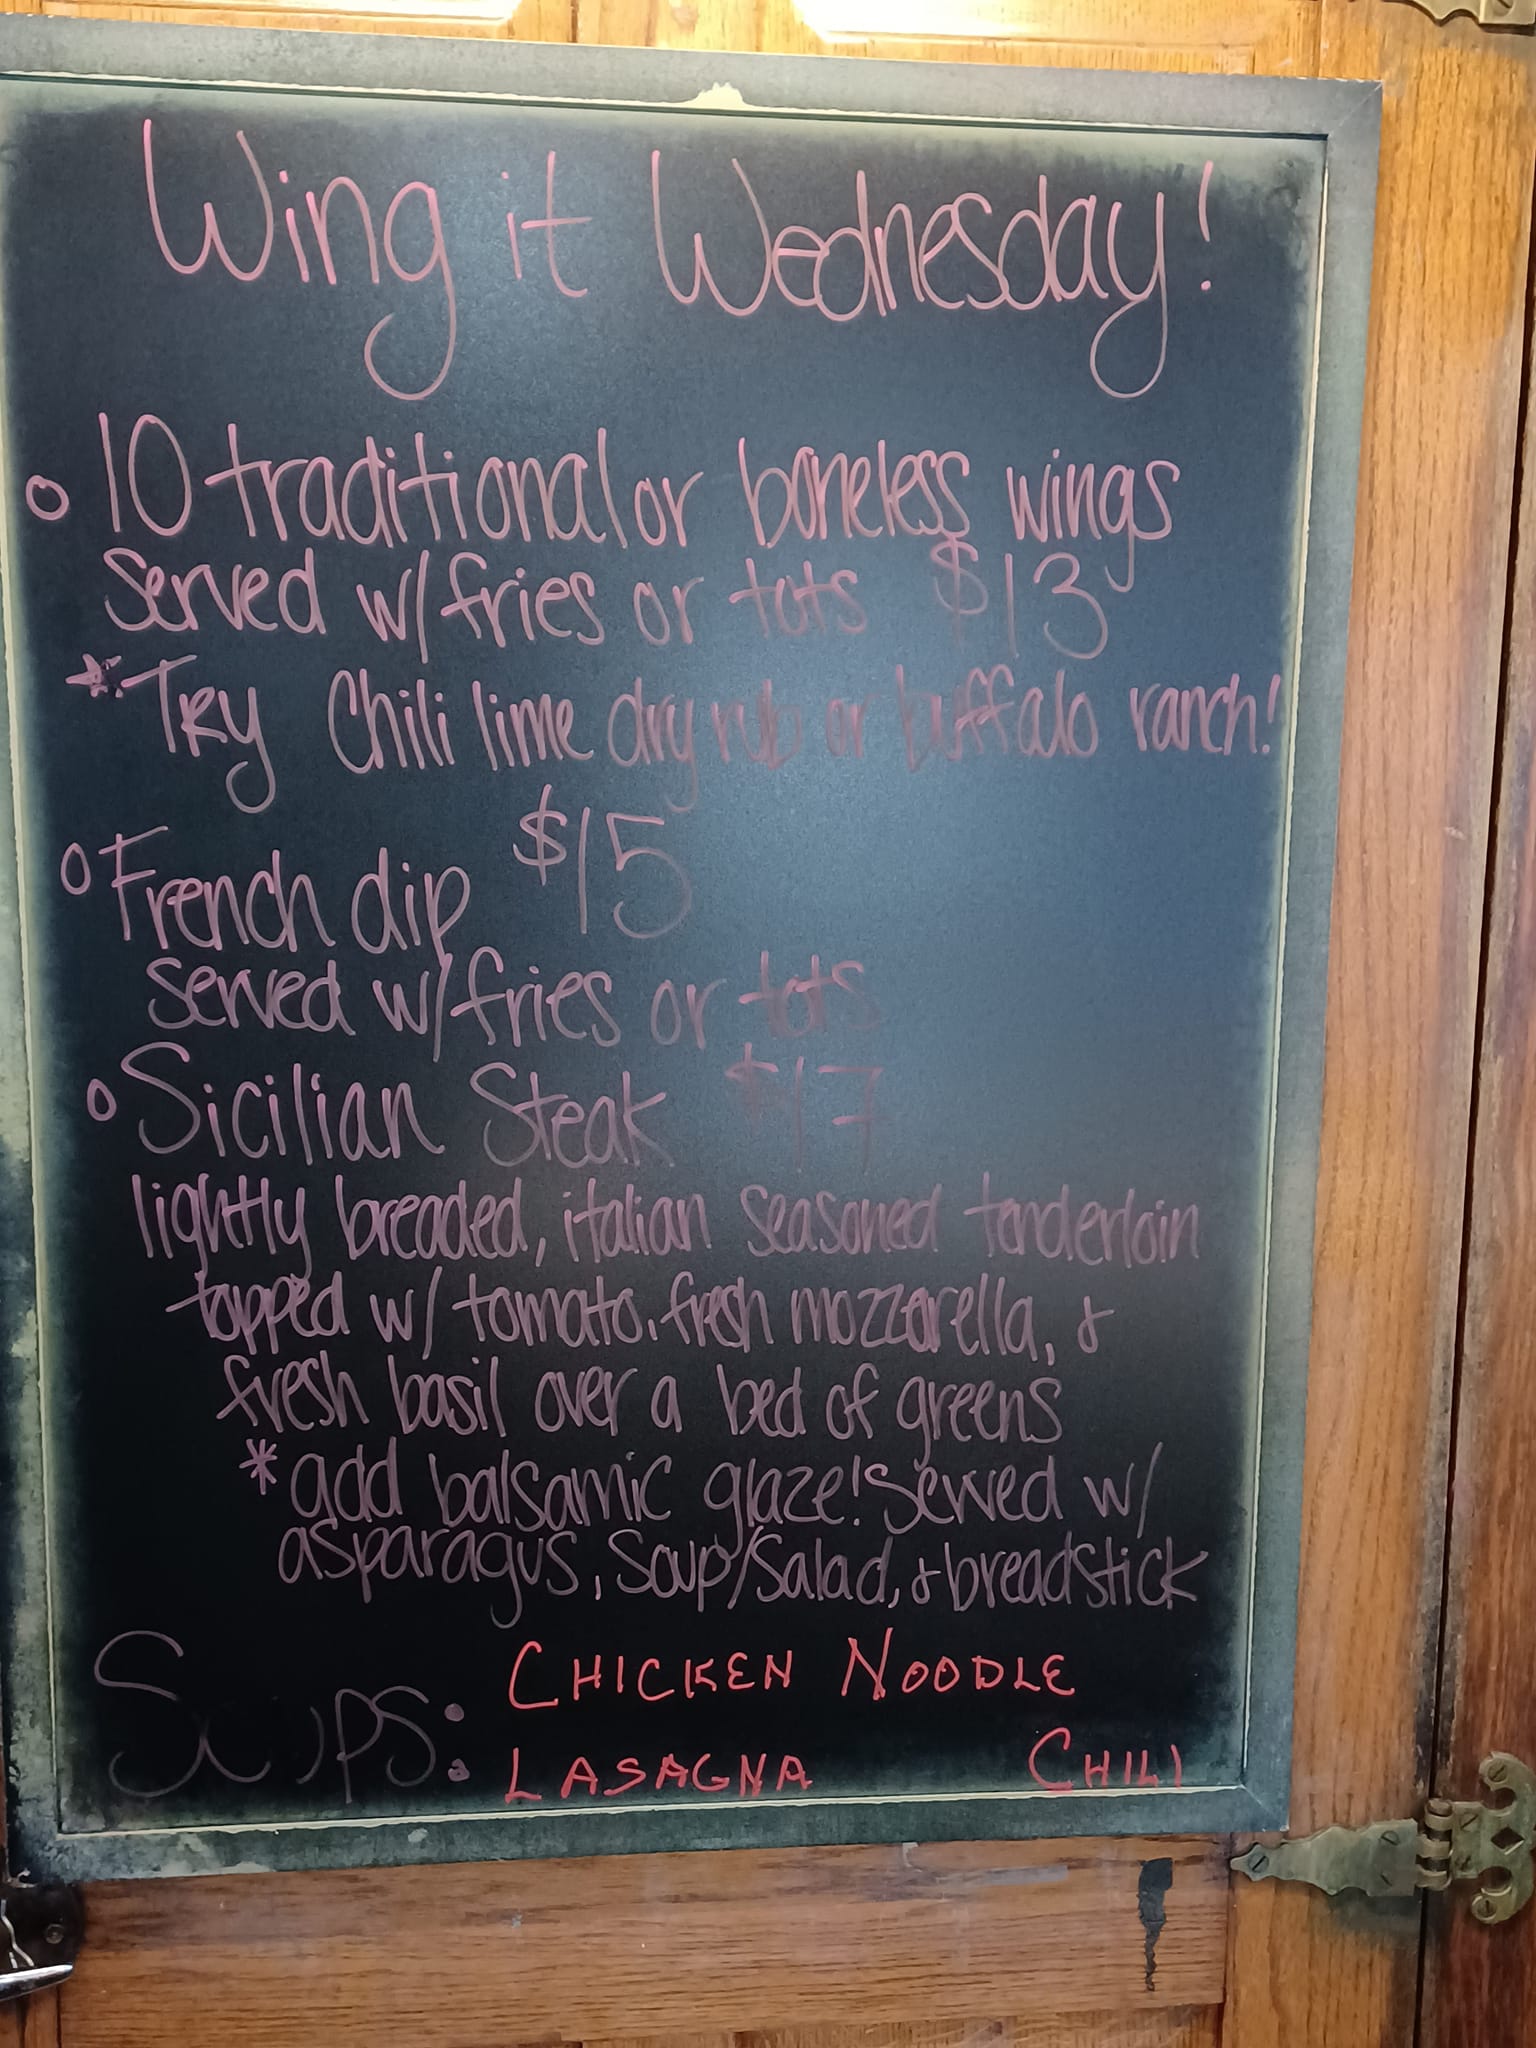 Wing it Wednesday!
o 10 traditional or boneless wings
served w/fries or tots $13
*Try Chili lime dry rub or buffalo ranch!
o French dip $15
served w/fries or tots
o Sicilian Steak $17
lightly breaded, italian seasoned tenderloin
topped w/ tomato, fresh mozzarella, &
fresh basil over a bed of greens
*add balsamic glaze! Served w/
asparagus, Soup/Salad, & breadstick
Soups: CHICKEN NOODLE
LASAGNA CHILI